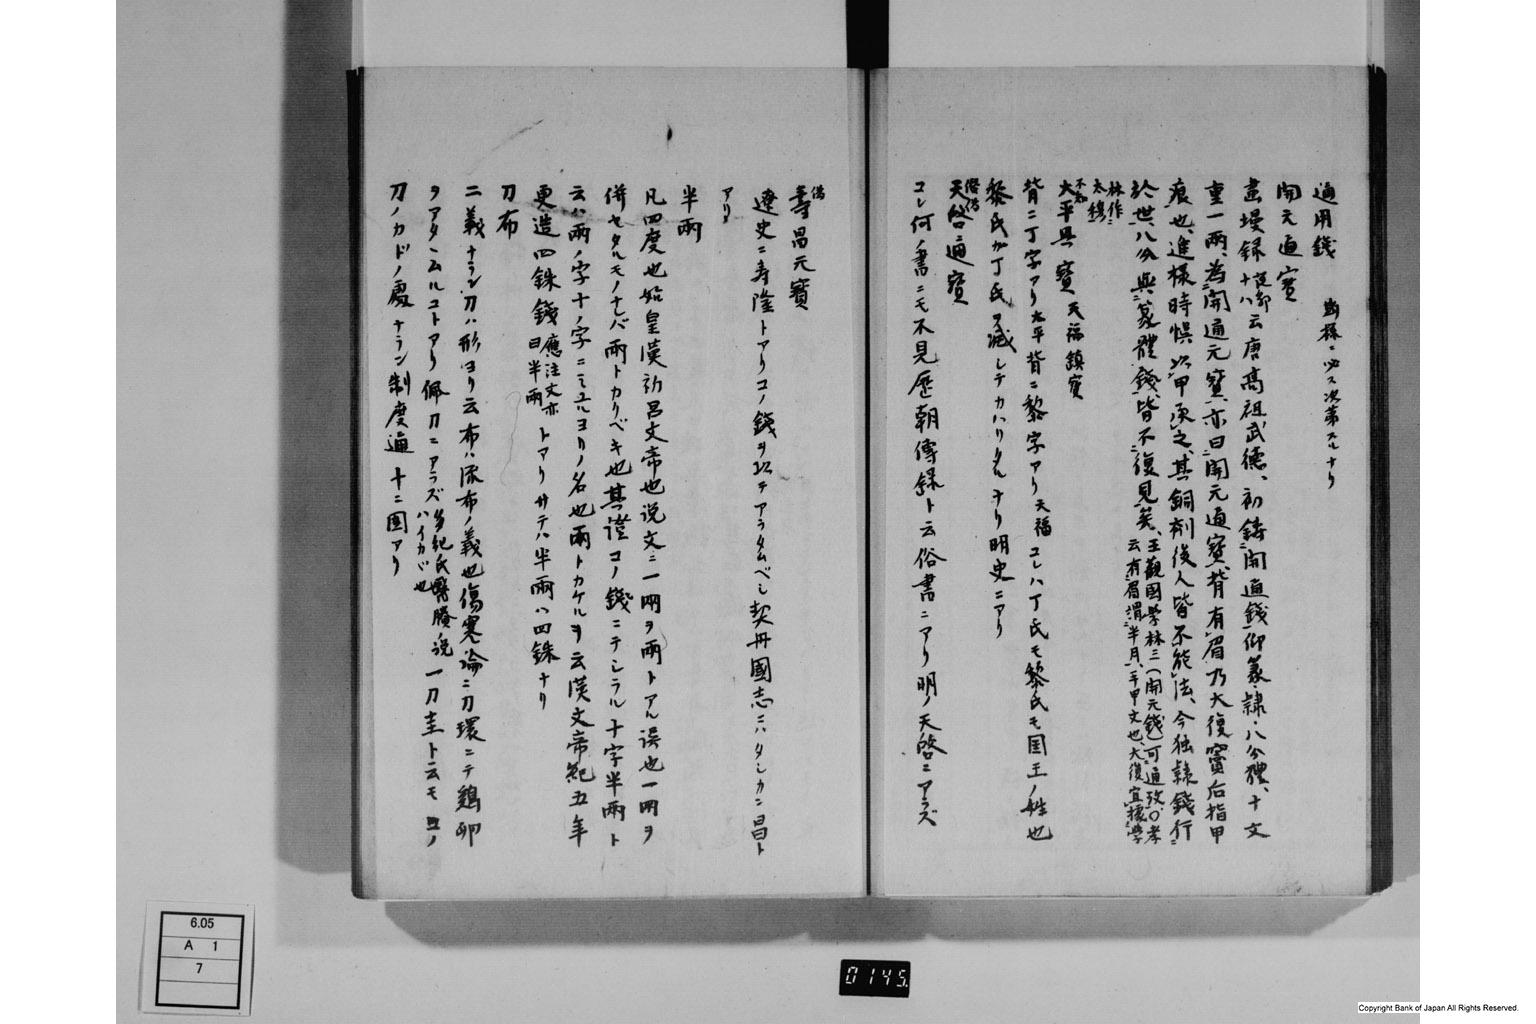 通用錢 皆樣ニ必ス次第スルナリ
開元通寳
畫墁録 説郛十八 云唐高祖武德、初鋳開通錢仰篆・隷・八分體、十文
重一兩、為開通元寳、亦曰開元通寳、背有眉乃大復竇后指甲
痕也、進樣時悞以甲承之、其銅剤後人皆不能法、今独隷錢行
於世、八分與篆體錢、皆不復見矣、王觀國學林三（開元錢）可通攷、〇孝
云有眉謂半月、一平甲文也、大復宜據學
林作太穆
大平興寳 天福鎮寳
背ニ丁字アリ太平背ニ黎字アリ天福コレハ丁氏モ黎氏モ国王ノ姓也
黎氏が丁氏ヲ滅シテカハリタルナリ明史ニアリ
天啓通寳
コレ何ノ書ニモ不見歴朝傳録ト云俗書ニアリ明ノ天啓ニアラズ
偽
壽昌元寳
遼史ニ寿隆トアリコノ錢ヲ以テアラタムベシ契丹國志ニハタシカニ昌ト
アリ
半兩
凡四度也始皇漢初呂文帝也説文ニ一兩ヲ兩トアル誤也一兩ヲ
併セタルモノナレバ兩トカクベキ也其證コノ錢ニテシラル十字半兩ト
云ハ兩ノ字十ノ字ニミユルヨリノ名也兩トカケルヲ云漢文帝紀五年
更造四銖錢 應注文亦曰半兩 トアリサテハ半兩ハ四銖ナリ
刀布
二義ナラン刀ハ形ヨリ云布ハ泉布ノ義也傷寒論ニ刀環ニテ鶏卵
ヲアタヽムルコトアリ佩刀ニアラズ多紀氏醫賸ノ説ハイカヾ也 一刀圭ト云モコノ
刀ノカドノ處ナラン制度通十二圖アリ
6.05
A 1
7
0145.
Copyright Bank of Japan All Rights Reserved.